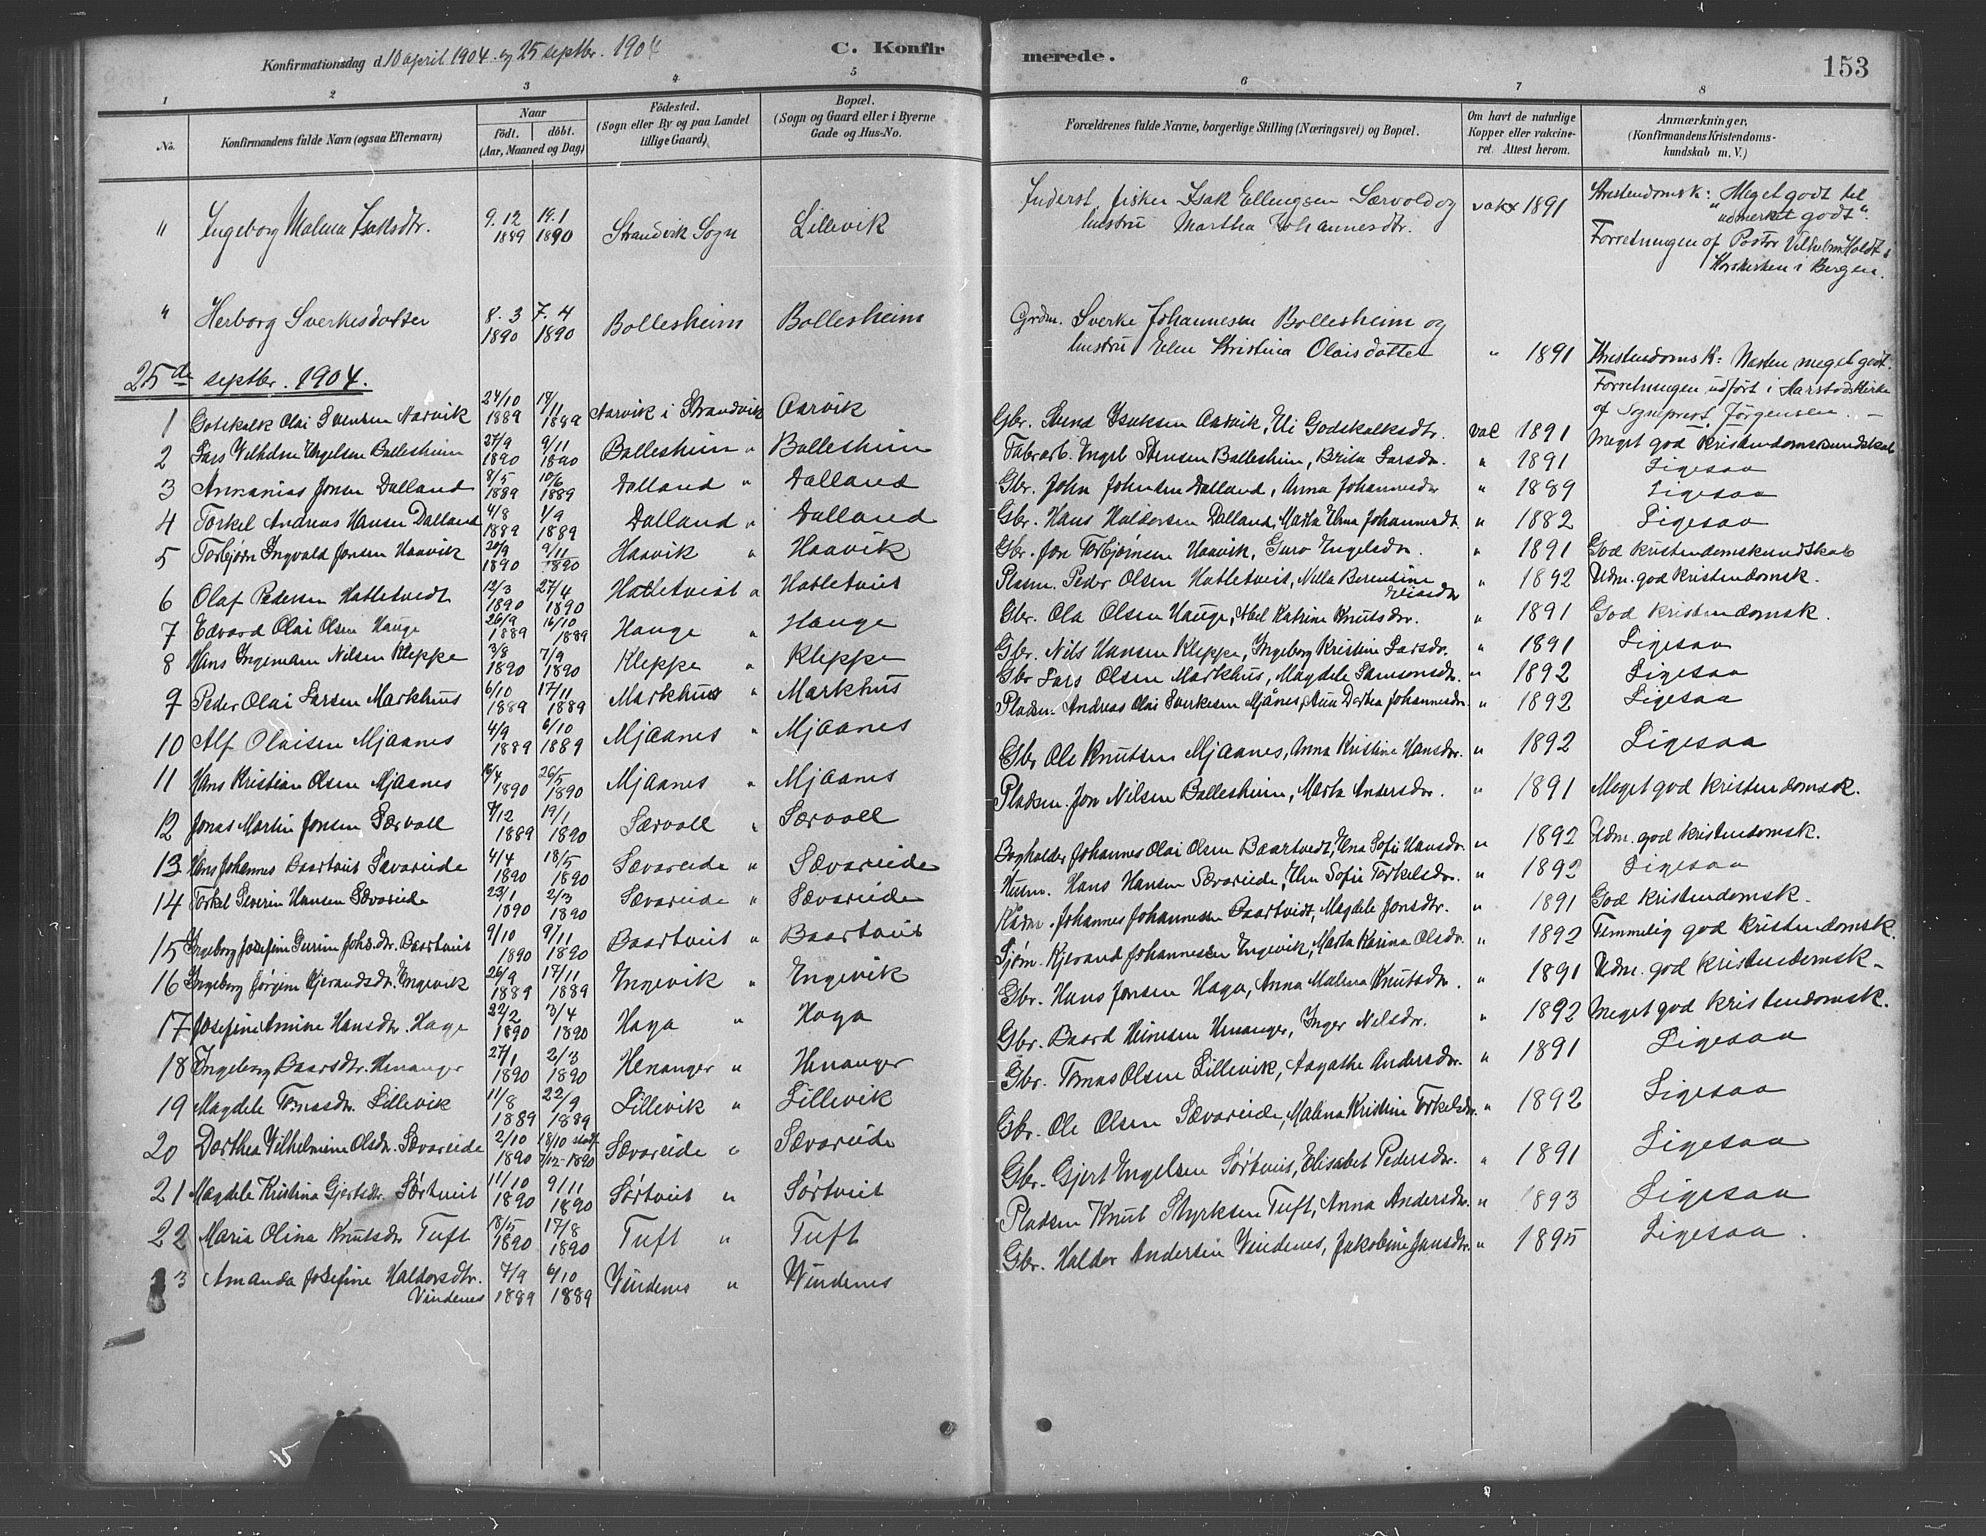 Konfirmationsdag d. 10 april 1904. og 25 septbr. 1904
C. Konfirmerede.
153
1 2 3 4 5 6 7 8
No. Konfirmandens fulde Navn (ogsaa Efternavn) Naar født. døbt. (Aar, Maaned og Dag) Fødested. (Sogn eller By og paa Landet tillige Gaard) Bopæl. (Sogn og Gaard eller i Byerne Gade og Hus-No. Forældrenes fulde Navne, borgerlige Stilling (Næringsvei) og Bopæl. Om havt de naturlige Kopper eller vakcineret. Attest herom. Anmærkninger. (Konfirmandens Kristendomskundskab m. V.)
" Ingeborg Malena Isaksdtr. 9.12 1889 19.1 1890 Strandvik Sogn Lillevik Inderst, fisker Isak Ellingsen Særvold og hustru Martha Johannesdtr. vakx 1891 Kristendomsk: "Meget godt til udmerket godt". Forretningen af Pastor Vilhelm Holdt i Korskirken i Bergen.
" Herborg Sverkesdatter 8.3 1890 7.4 1890 Bollesheim Bollesheim Grdm. Sverke Johannesen Bollesheim og hustru Elen Kristina Olaisdatter " 1891 Kristendomsk: Næsten meget godt. Forretningen udført i Aarstadkirke af Sogneprest Jørgensen.
25de septbr. 1904.
1 Gotskalk Olai Svensen Aarvik 24/10 1889 /11 1889 Aarvik i Strandvik Aarvik Gbr. Svend Isaksen Aarvik, Eli Godskalksdtr. vac 1891 Meget god kristendomskundskab
2 Lars Vilhelm Engelsen Balleshiem 27/9 1890 9/11 1890 Balleshiem " Balleshiem Fabr.arb. Engel Stensen Balleshiem, Brita Larsdr. " 1891 Ligesaa
3 Annanias Jonsen Dalland 8/5 1889 10/6 1889 Dalland " Dalland Gbr. John Johnsen Dalland, Anna Johannesdr " 1889 Ligesaa
4 Torkel Andreas Hansen Dalland 4/8 1889 1/9 1889 Dalland " Dalland Gbr. Hans Haldorsen Dalland, Marta Elena Johannesdt. " 1882 Ligesaa
5 Torbjørn Ingvald Jonsen Haavik 20/9 1890 9/11 1890 Haavik " Haavik Gbr. Jon Torbjørnsen Haavik, Guro Engelsdr. " 1891 God kristendomskundskab
6 Olaf Pedersen Hatletvedt 12/3 1890 27/4 1890 Hatletveit " Hatletveit Pladsm. Peder Olsen Hatletveit, Nilla Berentine Eliasdr " 1892 Udm. god kristendomsk.
7 Edvard Olai Olsen Hauge 26/9 1889 16/10 1889 Hauge " Hauge Gbr. Ola Olsen Hauge, Abel Katrine Knutsdr. " 1891 God kristendomsk.
8 Hans Ingemann Nilsen Kleppe 3/8 1890 7/9 1890 Kleppe " Kleppe Gbr. Nils Hansen Kleppe, Ingeborg Kristine Larsdr. " 1891 Ligesaa
9 Peder Olai Larsen Markhus 6/10 1889 17/11 1889 Markhus " Markhus Gbr Lars Olsen Markhus, Magdele Samsonsdr. " 1892 Ligesaa
10 Alf Olaisen Mjaanes 4/9 1889 6/10 1889 Mjaanes " Mjaanes Pladsm. Andreas Olai Sverkesen Mjånes, Ana Dortea Johannesdr " 1892 Ligesaa
11 Hans Kristian Olsen Mjaanes /4 1890 26/5 1890 Mjaanes " Mjaanes Gbr Ole Knutsen Mjaanes, Anna Kristine Hansdr. " 1892 Ligesaa
12 Jonas Martin Jonsen Særvoll 4/12 1889 19/1 1890 Særvoll " Særvoll Pladsm. Jon Nilsen Balleshiem, Marta Andersdr. " 1891 Meget god kristendomsk.
13 Hans Johannes Baartveit Sævareide 4/4 1890 18/5 1890 Sævareide " Sævareide Bogholder Johannes Olai Olsen Baartvedt, Ena Sofie Hansdr. " 1892 Udm. god kristendomsk.
14 Torkel Severin Hansen Sævareide 23/1 1890 2/3 1890 Sævareide " Sævareide Husm. Hans Hansen Sævareide, Elen Sofie Torkelsdr. " 1892 Ligesaa
15 Ingeborg Josefine Gurine Johs.dr. Baartveit 9/10 1890 9/11 1890 Baartveit " Baartveit Johannes Johannessen Baartveidt, Magdele Jonsdtr. " 1891 God kristendomsk.
16 Ingeborg Jørgine Kjerandsdr. Engevik 26/9 1889 17/11 1889 Engevik " Engevik Sjøm. Kjerand Johannessen Engevik, Marta Karina Olsdr. " 1892 Temmelig god kristendomsk.
17 Josefine Amine Hansdtr. Hage 22/2 1890 3/4 1890 Haga " Haga Gbr. Hans Jonsen Haga, Anna Malena Knutsdr. " 1891 Udm. god kristendomsk.
18 Ingeborg Baarsdtr. Henanger 27/1 1890 2/3 1890 Henanger " Henanger Gbr. Baard Heinesen Henanger, Inger Nilsdr. " 1892 Meget god kristendomsk.
19 Magdele Tomasdr. Lillevik 11/8 1889 22/9 1889 Lillevik " Lillevik Gbr. Tomas Olsen Lillevik, Aagathe Andersdr. " 1891 Ligesaa
20 Dorthea Vilhelmine Olsdr. Sævareide 2/10 1890 18/10 stadf. 7/12 1890 Sævareide " Sævareide Gbr. Ole Olsen Sævareide, Malina Kristine Torkelsdr. " 1892 Ligesaa
21 Magdele Kristina Gjertsdr. Sørtveit 11/10 1890 9/11 1890 Sørtveit " Sørtveit Gbr. Gjert Engelsen Sørtveit, Elisabet Pedersdr. " 1891 Ligesaa
22 Maria Olina Knutsdr Tuft 18/5 1890 17/8 1890 Tuft " Tuft Pladsm Knut Styrksen Tuft, Anna Andersdr. " 1893 Ligesaa
23 Amanda Josefine Haldorsdtr. Vindenes 7/9 1889 6/10 1889 Vindenes " Vindenes Gbr. Haldor Andersen Vindenes, Jakobine Jansdtr. " 1895 Ligesaa.